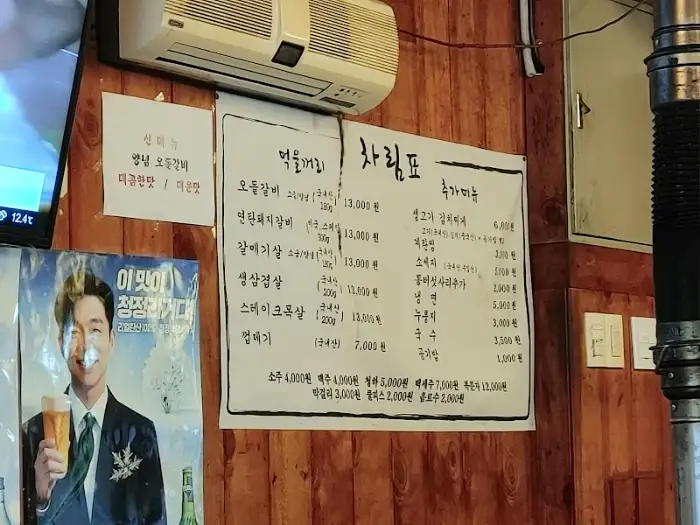 12.4℃
신메뉴
양념 오돌갈비
매콤한맛 / 매운맛
먹을꺼리 차림표
오돌갈비 소금/양념 (국내산) 180g 13,000 원
연탄돼지갈비 300g 13,000 원
갈매기살 소금/양념 (국내산) 13,000 원
생삼겹살 (국내산) 200g 13,000 원
스테이크목살 (국내산) 200g 13,000 원
껍데기 (국내산) 7,000 원
추가메뉴
생고기 김치찌개 6,000원
계란찜
소세지
통버섯사리추가 2,000원
냉면 5,000원
누룽지 3,000원
국수 3,500원
공기밥 1,000원
소주 4,000원 맥주 4,000원 청하 5,000원 백세주 7,000원 복분자 12,000원
막걸리 3,000원 쿨피스 2,000원 음료수 2,000원
이 맛이
청정라거다!
리얼탄산 100%